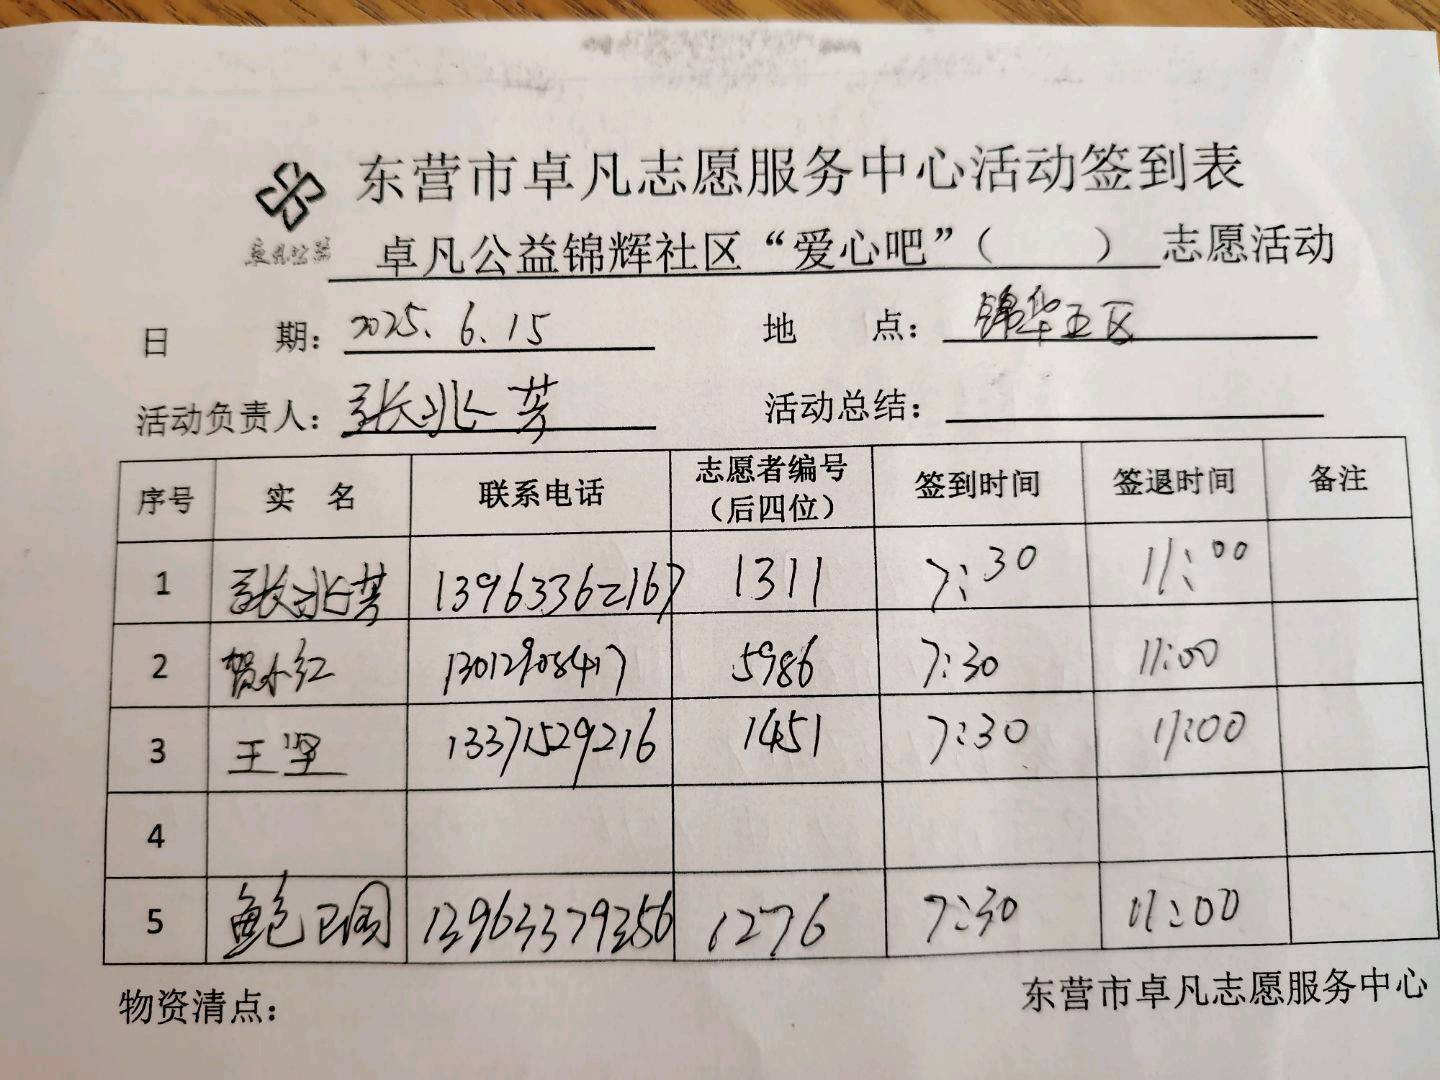 东营市卓凡志愿服务中心活动签到表
卓凡公益
卓凡公益锦辉社区“爱心吧”（ ）志愿活动
日 期：2025.6.15 地 点：锦华五区
活动负责人：张兆芳 活动总结：
序号 实 名 联系电话 志愿者编号（后四位） 签到时间 签退时间 备注
1 张兆芳 13963362167 1311 7:30 11:00
2 贺小红 13012908417 5986 7:30 11:00
3 王坚 13371529216 1451 7:30 11:00
4
5 鲍卫国 13963379356 1276 7:30 11:00
物资清点： 东营市卓凡志愿服务中心